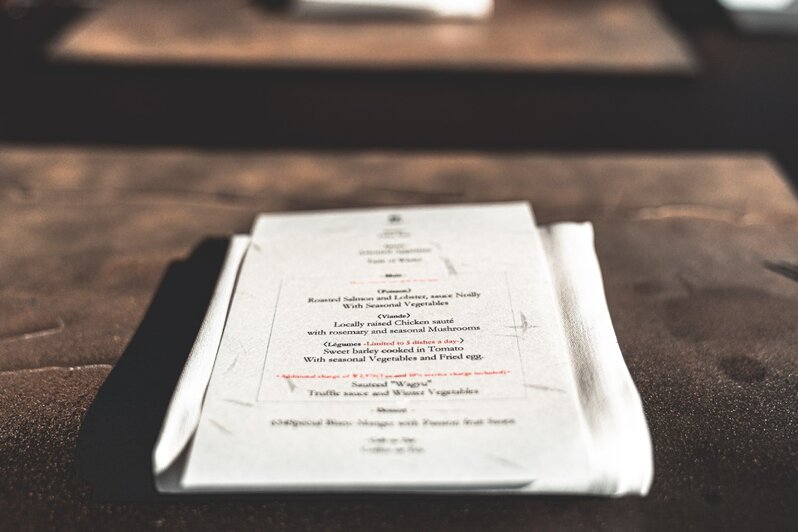 Taste of Winter
- Main -
〈Poisson〉
Roasted Salmon and Lobster, sauce Noilly
With Seasonal Vegetables
〈Viande〉
Locally raised Chicken sauté
with rosemary and seasonal Mushrooms
〈Légumes -Limited to 5 dishes a day-〉
Sweet barley cooked in Tomato
With seasonal Vegetables and Fried egg.
*Additional charge of (Tax and 10% service charge included)*
Sauteed "Wagyu"
Truffle sauce and Winter Vegetables
- Dessert -
Special Blanc-Manger with Passion fruit Sauce